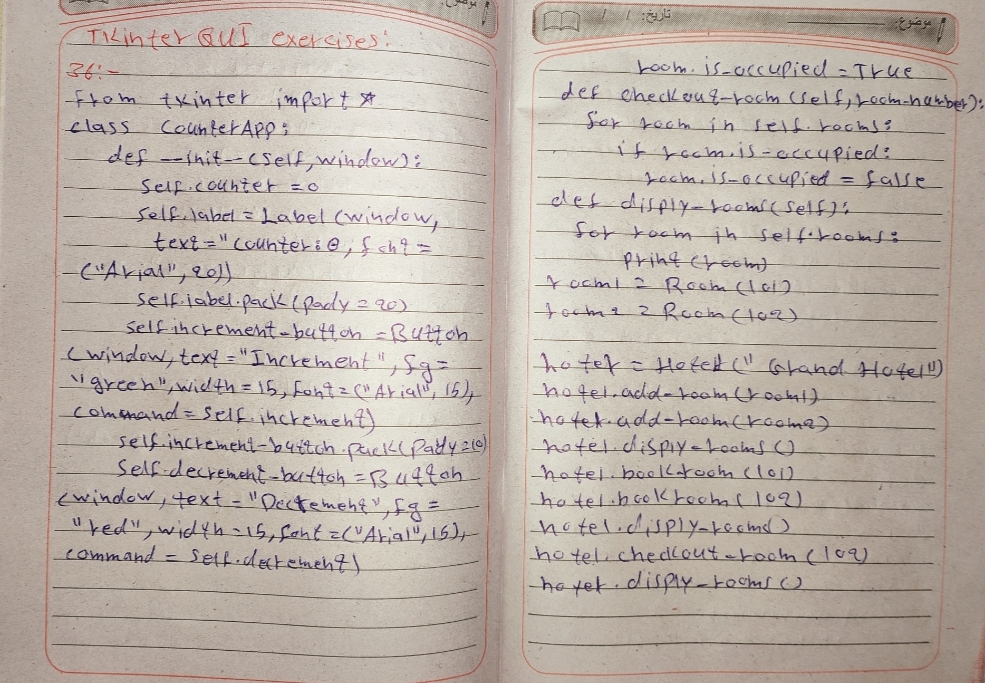 موضوع:
Tkinter GUI exercises:
36:-
from tkinter import *
class CounterApp:
def --init-- (self, window):
self.counter = 0
self.label = Label (window,
text = "counter: 0, font =
("Arial", 20))
self.label.pack (pady = 20)
self.increment-button = Button
(window, text = "Increment", fg =
"green", width = 15, font = ("Arial", 15),
command = self.increment)
self.increment-button.pack (pady = 10)
self.decrement-button = Button
(window, text = "Decrement", fg =
"red", width = 15, font = ("Arial", 15),
command = self.decrement)
موضوع: تاريخ: / /
room.is-occupied = True
def checkout-room (self, room-number):
for room in self.rooms:
if room.is-occupied:
room.is-occupied = false
def disply-rooms (self):
for room in self.rooms:
print (room)
room1 = Room (101)
room2 = Room (102)
hotel = Hotel (" Grand Hotel")
hotel.add-room (room1)
hotel.add-room (room2)
hotel.disply-rooms ()
hotel.book-room (101)
hotel.book room (102)
hotel.disply-rooms()
hotel.checkout-room (102)
hotel.disply-rooms ()